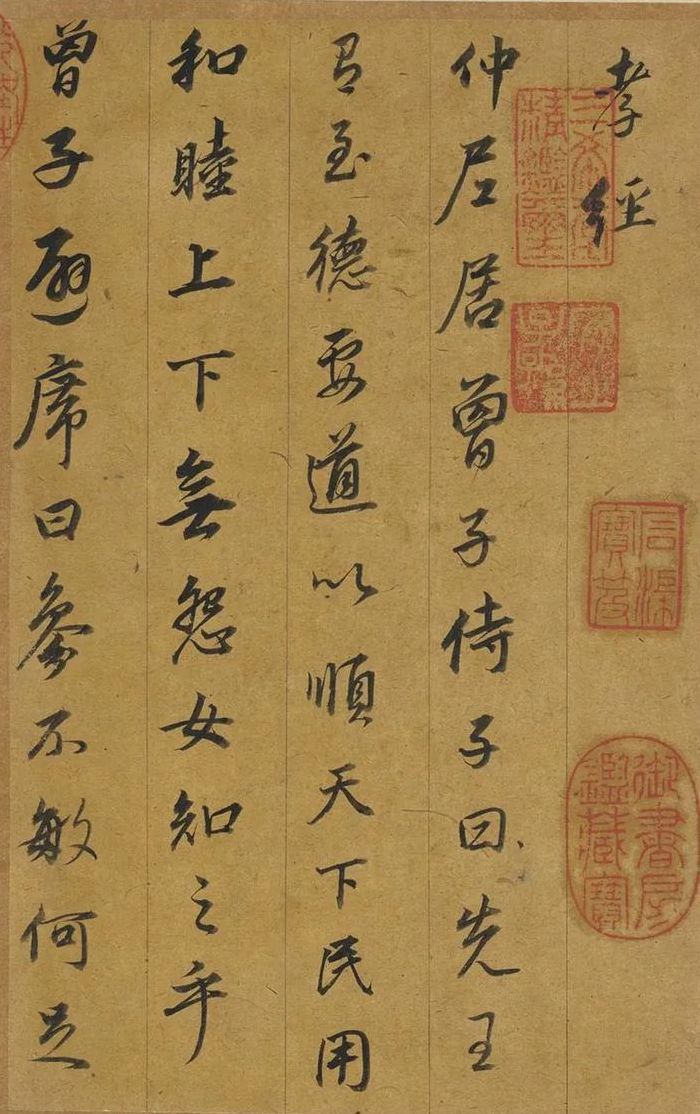 孝經
仲尼居曾子侍子曰先王
有至德要道以順天下民用
和睦上下無怨女知之乎
曾子避席曰參不敏何足
三希堂精鑑璽
石渠寶笈
御書房鑑藏寶